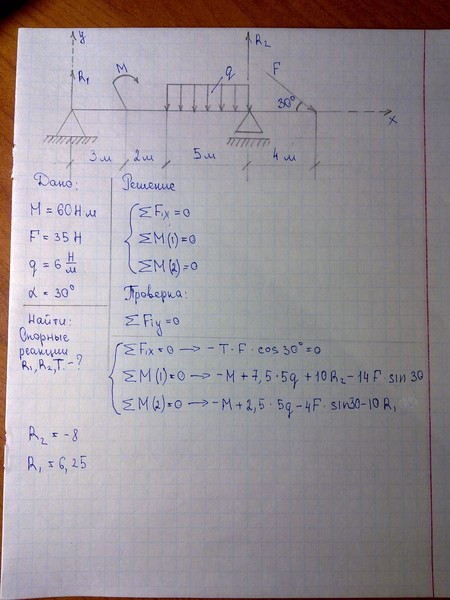 y
R₁
M
q
R₂
F
30°
x
3м 2м 5м 4м
Дано:
M = 60 Н м
F = 35 Н
q = 6 Н/м
α = 30°
Найти:
Опорные
реакции
R₁, R₂, T - ?
Решение
∑Fix = 0
∑M(1) = 0
∑M(2) = 0
Проверка:
∑Fiy = 0
∑Fix = 0 → - T · F · cos 30° = 0
∑M(1) = 0 → - M + 7,5 · 5q + 10 R₂ - 14 F sin 30
∑M(2) = 0 → - M + 2,5 · 5q - 4F · sin 30 - 10 R₁
R₂ = -8
R₁ = 6,25